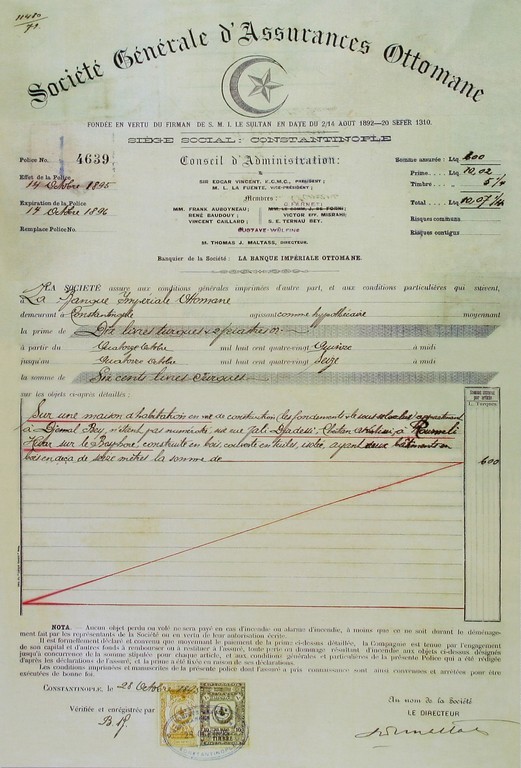 11480
Société Générale d'Assurances Ottomane
FONDÉE EN VERTU DU FIRMAN DE S. M. I. LE SULTAN EN DATE DU 2/14 AOUT 1892—20 SEFER 1310.
SIÈGE SOCIAL: CONSTANTINOPLE
Police No. 4639
Effet de la Police
14 Octobre 1895
Expiration de la Police
14 Octobre 1896
Remplace Police No.
Conseil d'Administration:
SIR EDGAR VINCENT, K.C.M.G., PRÉSIDENT;
M. L. LA FUENTE, VICE-PRÉSIDENT;
Membres:
MM. FRANK AUBOYNEAU;
RENÉ BAUDOUY;
VINCENT CAILLARD;
VICTOR EFF. MISRAHI;
S. E. TERNAU BEY.
GUSTAVE WÜLFING
M. THOMAS J. MALTASS, DIRECTEUR.
Banquier de la Société: LA BANQUE IMPÉRIALE OTTOMANE.
Somme assurée: Ltq. 600
Prime Ltq. 10,02
Timbre
Total Ltq.
Risques communs
Risques contigus
LA SOCIÉTÉ assure aux conditions générales imprimées d'autre part, et aux conditions particulières qui suivent,
La Banque Impériale Ottomane
demeurant à Constantinople agissant comme hypothécaire moyennant
la prime de Dix livres turques
à partir du Quatorze Octobre mil huit cent quatre-vingt Quinze à midi
jusqu'au Quatorze Octobre mil huit cent quatre-vingt Seize à midi
la somme de Six cents livres turques
sur les objets ci-après détaillés:
L. Turques
Sur une maison d'habitation en voie de construction (les fondements appartenant
à Djemal Bey, n'étant pas numérotée, sise rue à Roumeli
Hissar sur le Bosphore, construite en bois, couverte en tuiles, isolée, ayant deux bâtiments en
bois en deça de mètres la somme de
600
NOTA. — Aucun objet perdu ou volé ne sera payé en cas d'incendie ou alarme d'incendie, à moins que ce ne soit durant le déménage-
ment fait par les représentants de la Société ou en vertu de leur autorisation écrite.
Il est formellement déclaré et convenu que moyennant le paiement de la prime ci-dessus détaillée, la Compagnie est tenue par l'engagement
de son capital et d'autres fonds à rembourser ou à restituer à l'assuré, toute perte ou dommage résultant d'incendie aux objets ci-dessus désignés
jusqu'à concurrence de la somme stipulée pour chaque article, et aux conditions générales et particulières de la présente Police qui a été rédigée
d'après les déclarations de l'assuré, et la prime a été fixée en raison de ses déclarations.
Les conditions imprimées et manuscrites de la présente police dont l'assuré a pris connaissance sont ainsi convenues et arrêtées pour être
exécutées de bonne foi.
CONSTANTINOPLE, le 28 Octobre 1895
Vérifiée et enregistrée par
TIMBRE
Au nom de la Société
LE DIRECTEUR